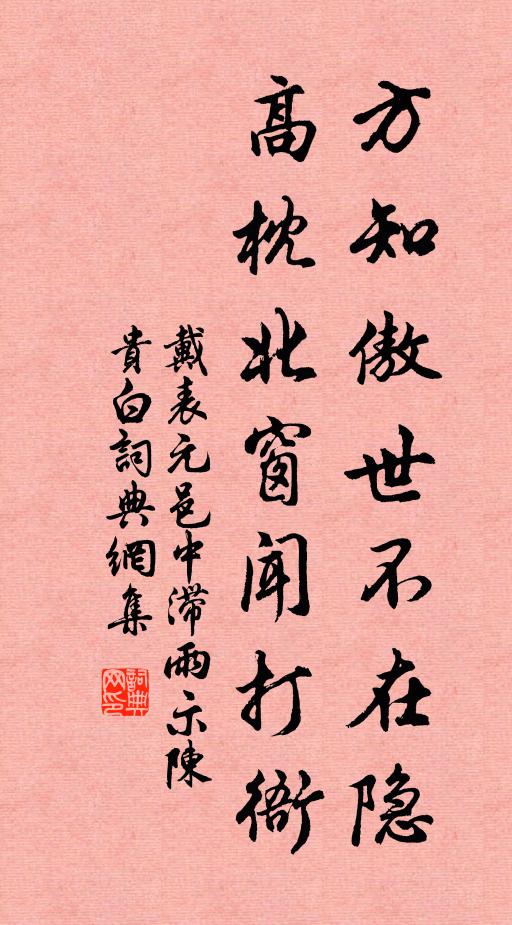 方知傲世不在隐
高枕北窗闻打衙
戴表元邑中滞雨示陳
貴白詞典網集
詞典网印